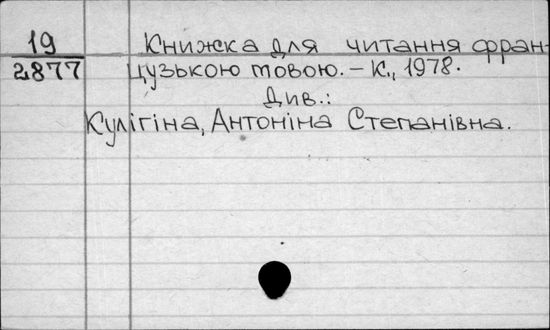 19 Книжка для читання фран-
2877 цузькою мовою. - К., 1978.
Див.:
Кулігіна, Антоніна Степанівна.